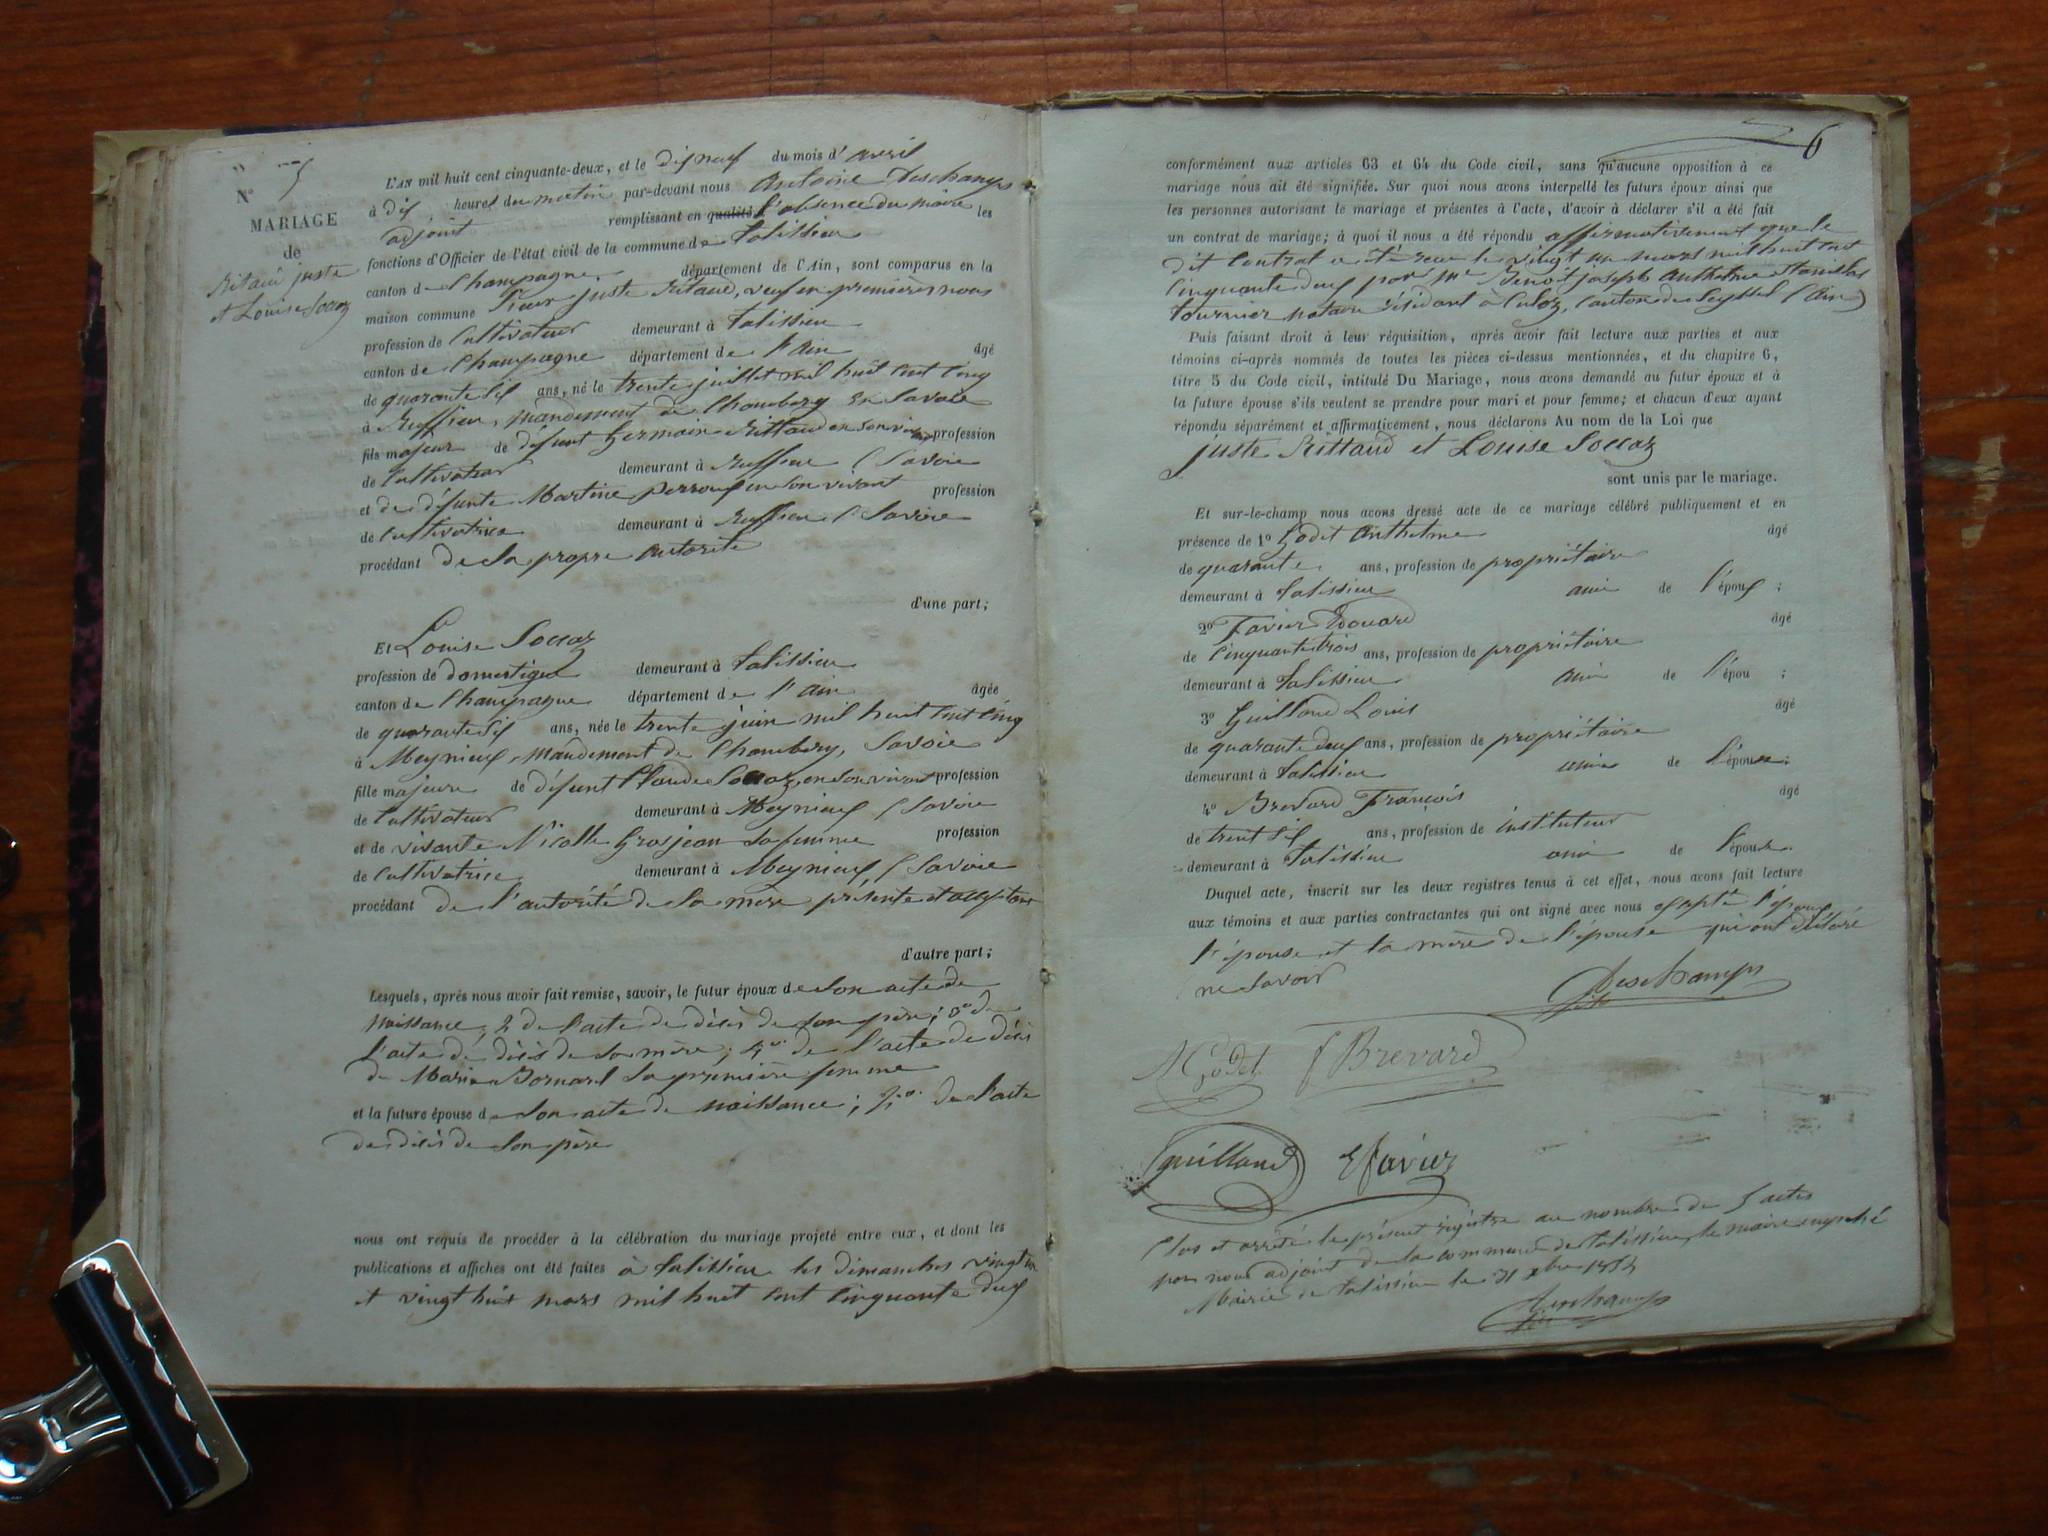 N° 5
MARIAGE
de
Ritaud juste
et Louise Soccaz
L'AN mil huit cent cinquante-deux, et le dix neuf du mois d'avril
à dix heures du matin par-devant nous Antoine Deschamps
adjoint remplissant en qualité l'absence du maire les
fonctions d'Officier de l'état civil de la commune de Talissieu
canton de Champagne, département de l'Ain, sont comparus en la
maison commune Sieur juste Ritaud, veuf en premières noces
profession de Cultivateur demeurant à Talissieu
canton de Champagne département de l'ain âgé
de quarante six ans, né le trente juillet mil huit cent cinq
à Ruffieu, mandement de Chambery en Savoie
fils majeur de défunt Germain Rittaud en son vivant profession
de Cultivateur demeurant à Ruffieu (Savoie
et de défunte Martine Perroux en son vivant profession
de Cultivatrice demeurant à Ruffieu (Savoie
procédant de sa propre autorité
d'une part;
Et Louise Soccaz
profession de domestique demeurant à Talissieu
canton de Champagne département de l'ain âgée
de quarante six ans, née le trente juin mil huit cent cinq
à Meynieux, mandement de Chambery, Savoie
fille majeure de défunt Claude Soccaz, en son vivant profession
de Cultivateur demeurant à Meynieux (Savoie
et de vivante Nicolle Grosjean sa femme profession
de Cultivatrice demeurant à Meynieux (Savoie
procédant de l'autorité de sa mère présente et acceptant
d'autre part;
Lesquels, après nous avoir fait remise, savoir, le futur époux de son acte de
naissance; 2° de l'acte de décès de son père; 3° de
l'acte de décès de sa mère; 4° de l'acte de décès
de Marie Bornard sa première femme
et la future épouse de son acte de naissance; 2° de l'acte
de décès de son père
nous ont requis de procéder à la célébration du mariage projeté entre eux, et dont les
publications et affiches ont été faites à Talissieu les dimanches vingt un
et vingt huit mars mil huit cent cinquante deux
6
conformément aux articles 63 et 64 du Code civil, sans qu'aucune opposition à ce
mariage nous ait été signifiée. Sur quoi nous avons interpellé les futurs époux ainsi que
les personnes autorisant le mariage et présentes à l'acte, d'avoir à déclarer s'il a été fait
un contrat de mariage; à quoi il nous a été répondu affirmativement que le
dit Contrat a été reçu le vingt un mars mil huit cent
cinquante deux par Me Benoit joseph Anthelme Stanislas
Tournier notaire résidant à Culoz, canton de Seyssel (Ain)
Puis faisant droit à leur réquisition, après avoir fait lecture aux parties et aux
témoins ci-après nommés de toutes les pièces ci-dessus mentionnées, et du chapitre 6,
titre 5 du Code civil, intitulé Du Mariage, nous avons demandé au futur époux et à
la future épouse s'ils veulent se prendre pour mari et pour femme; et chacun d'eux ayant
répondu séparément et affirmativement, nous déclarons Au nom de la Loi que
juste Rittaud et Louise Soccaz
sont unis par le mariage.
Et sur-le-champ nous avons dressé acte de ce mariage célébré publiquement et en
présence de 1° Godet Anthelme âgé
de quarante ans, profession de propriétaire
demeurant à Talissieu ami de l'époux ;
2° Favier Edouard âgé
de cinquante trois ans, profession de propriétaire
demeurant à Talissieu ami de l'épou ;
3° Guilland Louis âgé
de quarante deux ans, profession de propriétaire
demeurant à Talissieu ami de l'épouse;
4° Brevard François âgé
de trent six ans, profession de instituteur
demeurant à Talissieu ami de l'épouse.
Duquel acte, inscrit sur les deux registres tenus à cet effet, nous avons fait lecture
aux témoins et aux parties contractantes qui ont signé avec nous excepté l'époux
l'épouse et la mère de l'épouse qui ont déclaré
ne savoir
Deschamps
A Godet F Brevard
Guilland E Favier
Clos et arrêté le présent registre au nombre de 5 actes
par nous adjoint de la commune de Talissieu, le maire empêché
Mairie de Talissieu le 31 xbre 1852
Deschamps